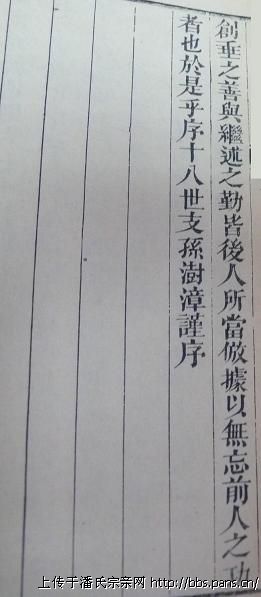 創垂之善與繼述之勤皆後人所當倣據以無忘前人之功
者也於是乎序十八世支孫澍漳謹序
上传于潘氏宗亲网 http://bbs.pans.cn/